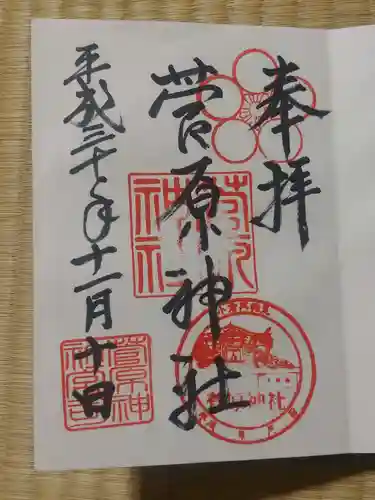 奉拝
菅原神社
平成三十年十一月十日
菅原神社
菅原神社
菅原神
社宮司